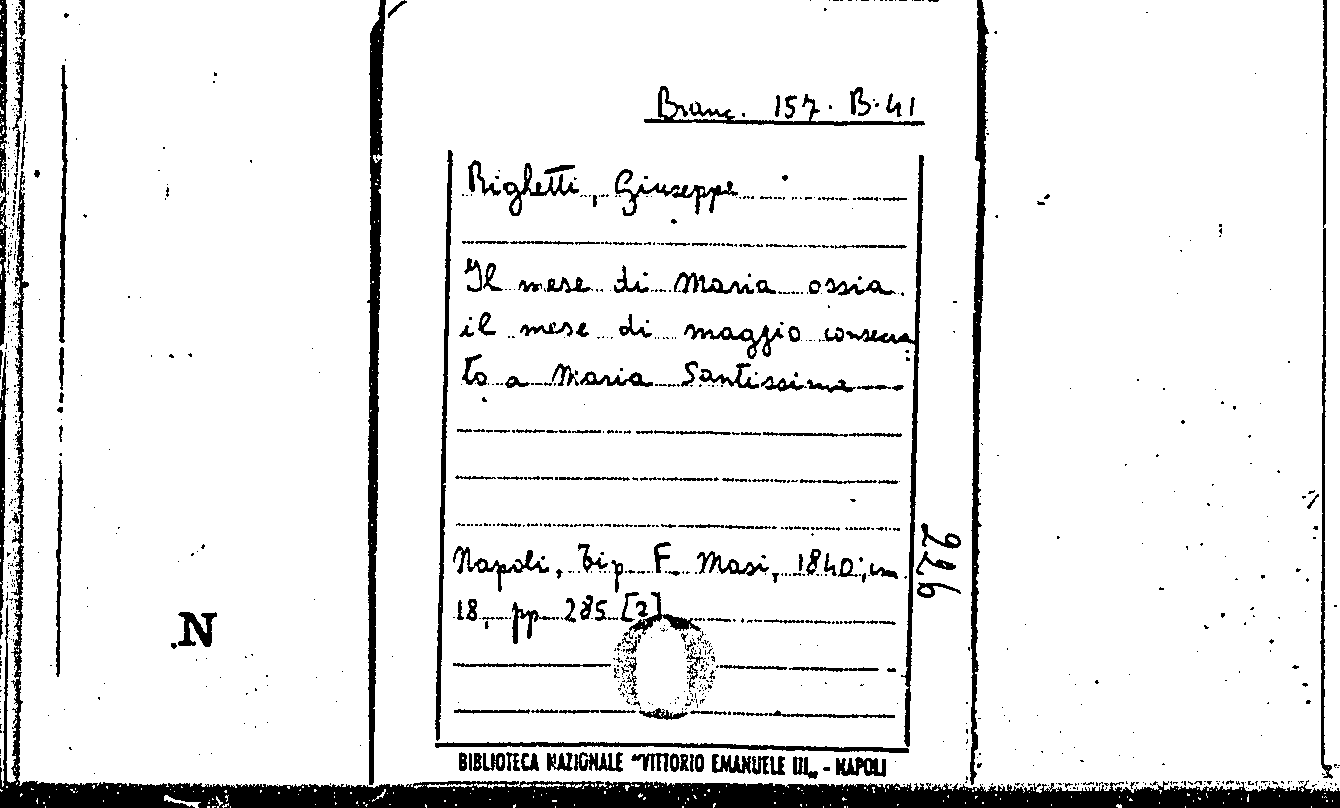 Branc. 157. B.41
Righetti, Giuseppe
Il mese di Maria ossia
il mese di maggio consecra
to a Maria Santissima
Napoli, Tip. F. Masi, 1840; cm
18, pp 285 [2]
226
N
BIBLIOTECA NAZIONALE "VITTORIO EMANUELE III„ - NAPOLI